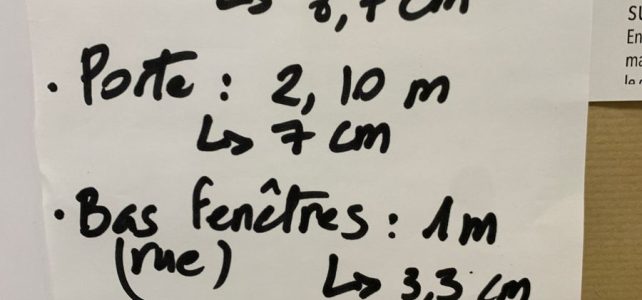 ↳ 6,7 cm
• Porte : 2,10 m
↳ 7 cm
• Bas fenêtres : 1 m
(rue)
↳ 3,3 cm
En